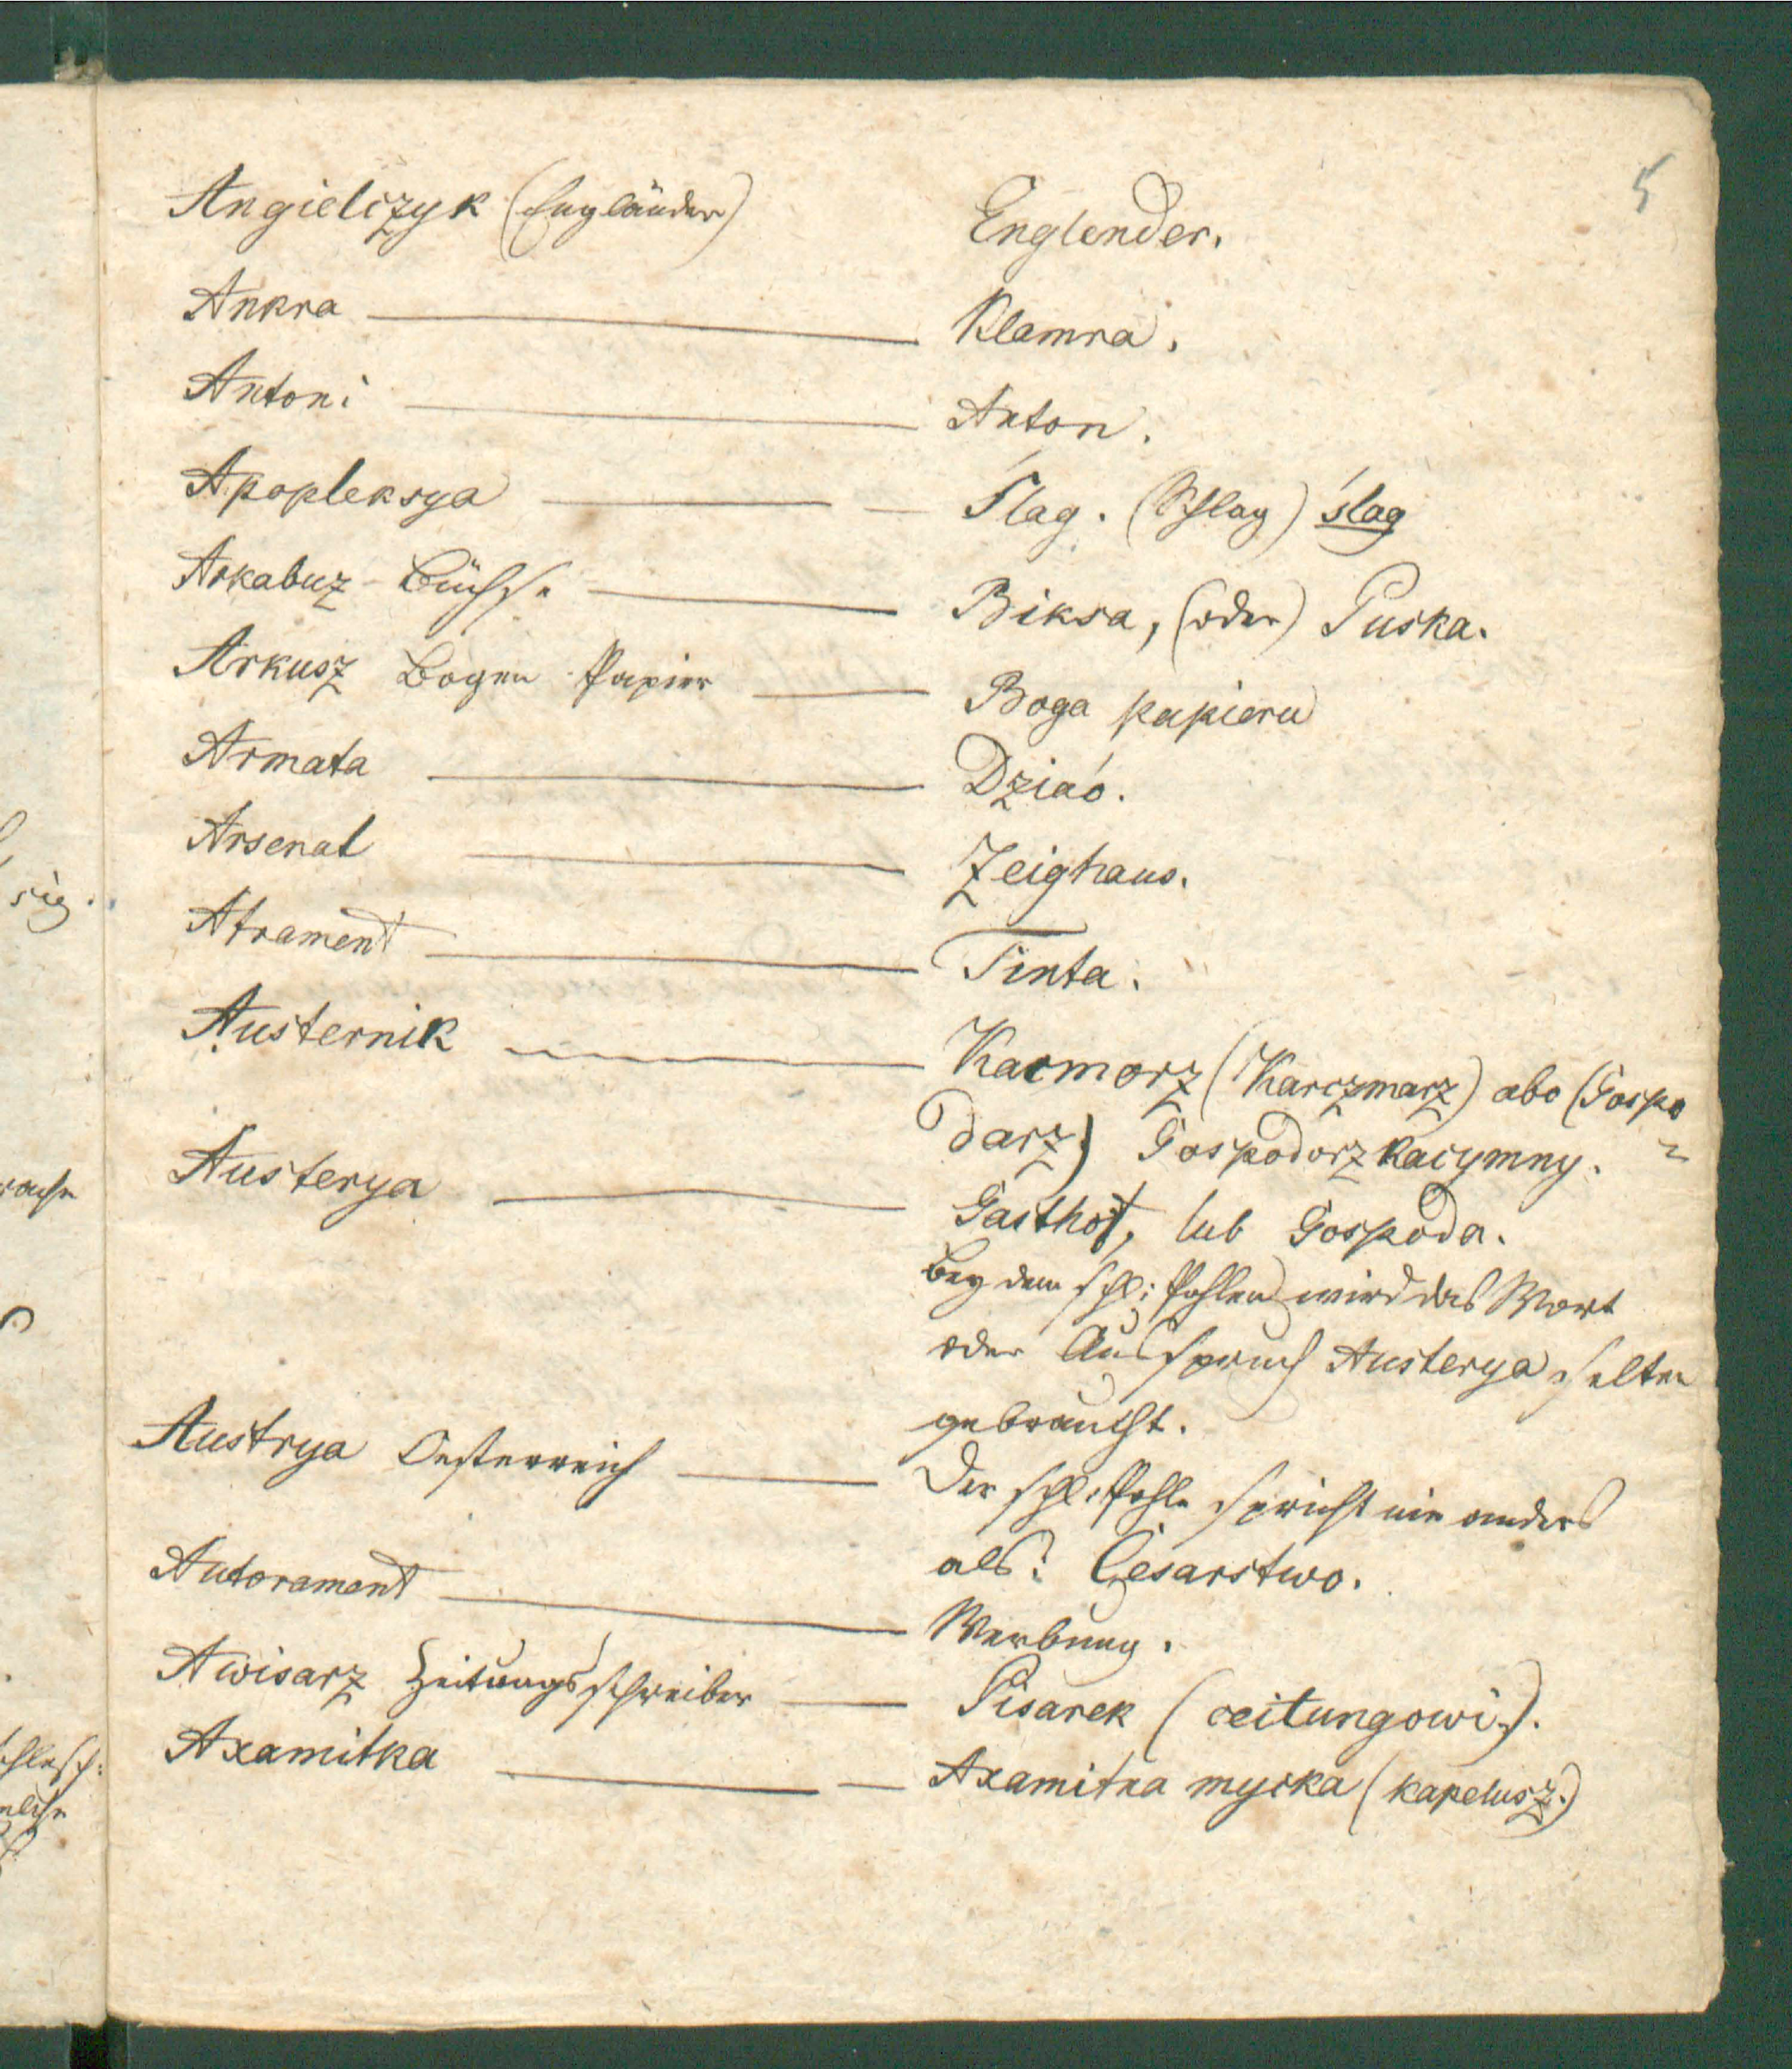 5
Angielczyk (Engländer) Englender.
Ankra — Klamra.
Antoni — Anton.
Apopleksya — — Ślag. (Schlag) ślag
Arkabuz - Büchse — Biksa, (oder) Puska.
Arkusz Bogen Papier — Boga papieru
Armata — Dziáo.
Arsenał — Zeighaus.
Atrament — Tinta.
Austernik — Kacmorz (Karczmarz) abo (Gospo
darz) Gospodorz kacymny.
Austerya — Gasthof, lub Gospoda.
Bey dem schl: Pohlen wird das Wort
oder Ausspruch Austerya selten
gebraucht.
Austrya Oesterreich — Der schl: Pohle spricht nie anders
als: Cesarstwo.
Autorament — Werbung.
Awisarz Zeitungsschreiber — Pisarek (ceitungowi.).
Axamitka — — Axamitka mycka (kapelusz.)
się.